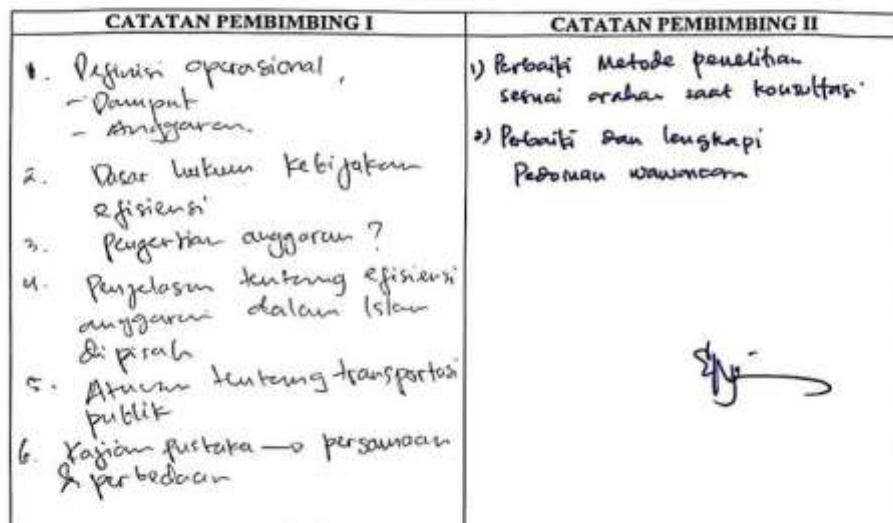 CATATAN PEMBIMBING I
1. Definisi operasional,
- Dampak
- Anggaran.
2. Dasar hukum kebijakan
efisiensi
3. Pengertian anggaran ?
4. Penjelasan tentang efisiensi
anggaran dalam Islam
di pisah
5. Aturan tentang transportasi
publik
6. Kajian pustaka → persamaan
& perbedaan
CATATAN PEMBIMBING II
1) Perbaiki Metode penelitian
sesuai arahan saat konsultasi.
2) Perbaiki dan lengkapi
Pedoman wawancara